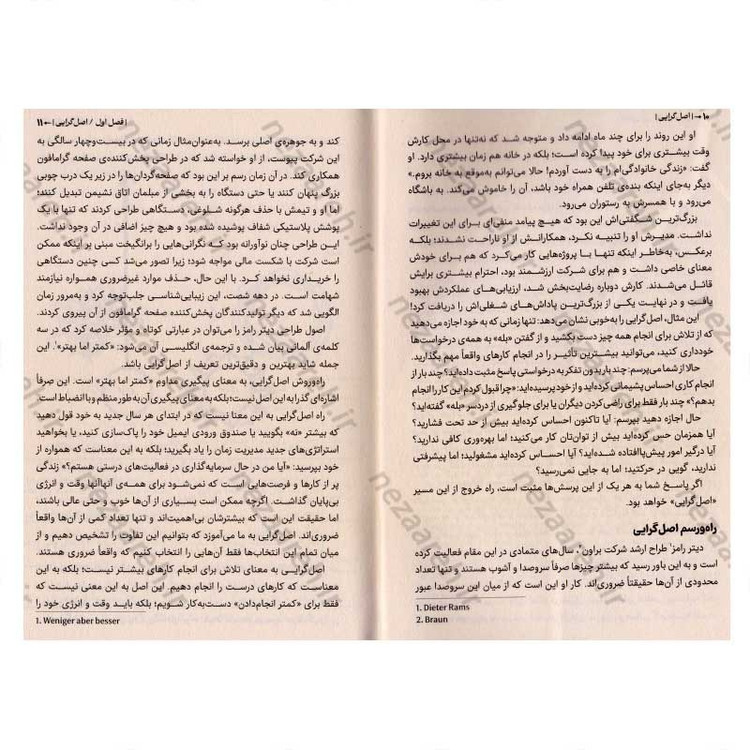 ۱۰ → | اصل‌گرایی |
او این روند را برای چند ماه ادامه داد و متوجه شد که نه‌تنها در محل کارش
وقت بیشتری برای خود پیدا کرده است؛ بلکه در خانه هم زمان بیشتری دارد. او
گفت: «زندگی خانوادگی‌ام را به دست آوردم! حالا می‌توانم به‌موقع به خانه بروم.»
دیگر به‌جای اینکه بنده‌ی تلفن همراه خود باشد، آن را خاموش می‌کند. به باشگاه
می‌رود و با همسرش به رستوران می‌رود.
بزرگ‌ترین شگفتی‌اش این بود که هیچ پیامد منفی‌ای برای این تغییرات
نداشت. مدیرش او را تنبیه نکرد، همکارانش از او ناراحت نشدند؛ بلکه
برعکس، به‌خاطر اینکه تنها با پروژه‌هایی کار می‌کرد که هم برای خودش
معنای خاصی داشت و هم برای شرکت ارزشمند بود، احترام بیشتری برایش
قائل می‌شدند. کارش دوباره رضایت‌بخش شد، ارزیابی‌های عملکردش بهبود
یافت و در نهایت یکی از بزرگ‌ترین پاداش‌های شغلی‌اش را دریافت کرد!
این مثال، اصل‌گرایی را به‌خوبی نشان می‌دهد: تنها زمانی که به خود اجازه می‌دهید
که از تلاش برای انجام همه چیز دست بکشید و از گفتن «بله» به همه‌ی درخواست‌ها
خودداری کنید، می‌توانید بیشترین تأثیر را در انجام کارهای واقعاً مهم بگذارید.
حالا از شما می‌پرسم: چند بار بدون تفکر به درخواستی پاسخ مثبت داده‌اید؟ چند بار از
انجام کاری احساس پشیمانی کرده‌اید و از خود پرسیده‌اید: «چرا قبول کردم این کار را انجام
بدهم؟» چند بار فقط برای راضی کردن دیگران یا برای جلوگیری از دردسر «بله» گفته‌اید؟
حال اجازه دهید بپرسم: آیا تاکنون احساس کرده‌اید بیش از حد تحت فشارید؟
آیا همزمان حس کرده‌اید بیش از توان‌تان کار می‌کنید؛ اما بهره‌وری کافی ندارید؟
آیا درگیر امور پیش‌پاافتاده شده‌اید؟ آیا احساس کرده‌اید مشغولید؛ اما پیشرفتی
ندارید، گویی در حرکتید؛ اما به جایی نمی‌رسید؟
اگر پاسخ شما به هر یک از این پرسش‌ها مثبت است، راه خروج از این مسیر
«اصل‌گرایی» خواهد بود.
راه‌ورسم اصل‌گرایی
دیتر رامز¹ طراح ارشد شرکت براون² سال‌های متمادی در این مقام فعالیت کرده
است و به این باور رسید که بیشتر چیزها صرفاً سروصدا و آشوب هستند و تنها تعداد
محدودی از آن‌ها حقیقتاً ضروری‌اند. کار او این است که از میان این سروصدا عبور
1. Dieter Rams
2. Braun
| فصل اول / اصل‌گرایی | ← ۱۱
کند و به جوهره‌ی اصلی برسد. به‌عنوان‌مثال زمانی که در بیست‌وچهار سالگی به
این شرکت پیوست، از او خواسته شد که در طراحی پخش‌کننده‌ی صفحه گرامافون
همکاری کند. در آن زمان رسم بر این بود که صفحه‌گردان‌ها را در زیر یک درب چوبی
بزرگ پنهان کنند یا حتی دستگاه را به بخشی از مبلمان اتاق نشیمن تبدیل کنند؛
اما او و تیمش با حذف هرگونه شلوغی، دستگاهی طراحی کردند که تنها با یک
پوشش پلاستیکی شفاف پوشیده شده بود و هیچ چیز اضافی در آن وجود نداشت.
این طراحی چنان نوآورانه بود که نگرانی‌هایی را برانگیخت مبنی بر اینکه ممکن
است شرکت با شکست مالی مواجه شود؛ زیرا تصور می‌شد کسی چنین دستگاهی
را خریداری نخواهد کرد. با این حال، حذف موارد غیرضروری همواره نیازمند
شهامت است. در دهه شصت، این زیبایی‌شناسی جلب‌توجه کرد و به‌مرور زمان
الگویی شد که دیگر تولیدکنندگان پخش‌کننده صفحه گرامافون از آن پیروی کردند.
اصول طراحی دیتر رامز را می‌توان در عبارتی کوتاه و مؤثر خلاصه کرد که در سه
کلمه‌ی آلمانی بیان شده و ترجمه‌ی انگلیسی آن می‌شود: «کمتر اما بهتر¹». این
جمله شاید بهترین و دقیق‌ترین تعریف از اصل‌گرایی باشد.
راه‌وروش اصل‌گرایی، به معنای پیگیری مداوم «کمتر اما بهتر» است. این صرفاً
اشاره‌ای گذرا به این اصل نیست؛ بلکه به معنای پیگیری آن به طور منظم و با انضباط است.
راه اصل‌گرایی به این معنا نیست که در ابتدای هر سال جدید به خود قول دهید
که بیشتر «نه» بگویید یا صندوق ورودی ایمیل خود را پاک‌سازی کنید، یا بخواهید
استراتژی‌های جدید مدیریت زمان را یاد بگیرید؛ بلکه به این معناست که همواره از
خود بپرسید: «آیا من در حال سرمایه‌گذاری در فعالیت‌های درستی هستم؟» زندگی
پر از کارها و فرصت‌هایی است که نمی‌شود برای همه‌ی آنها وقت و انرژی
بی‌پایان گذاشت. اگرچه ممکن است بسیاری از آن‌ها خوب و حتی عالی باشند،
اما حقیقت این است که بیشترشان بی‌اهمیت‌اند و تنها تعداد کمی از آن‌ها واقعاً
ضروری‌اند. راه اصل‌گرایی به ما می‌آموزد که بتوانیم این تفاوت را تشخیص دهیم و از
میان تمام این انتخاب‌ها فقط آن‌هایی را انتخاب کنیم که واقعاً ضروری هستند.
اصل‌گرایی به معنای تلاش برای انجام کارهای بیشتر نیست؛ بلکه به این
معناست که کارهای درست را انجام دهیم. این اصل به این معنی نیست که
فقط برای «کمتر انجام‌دادن» دست‌به‌کار شویم؛ بلکه باید وقت و انرژی خود را
1. Weniger aber besser
nezaarah.ir